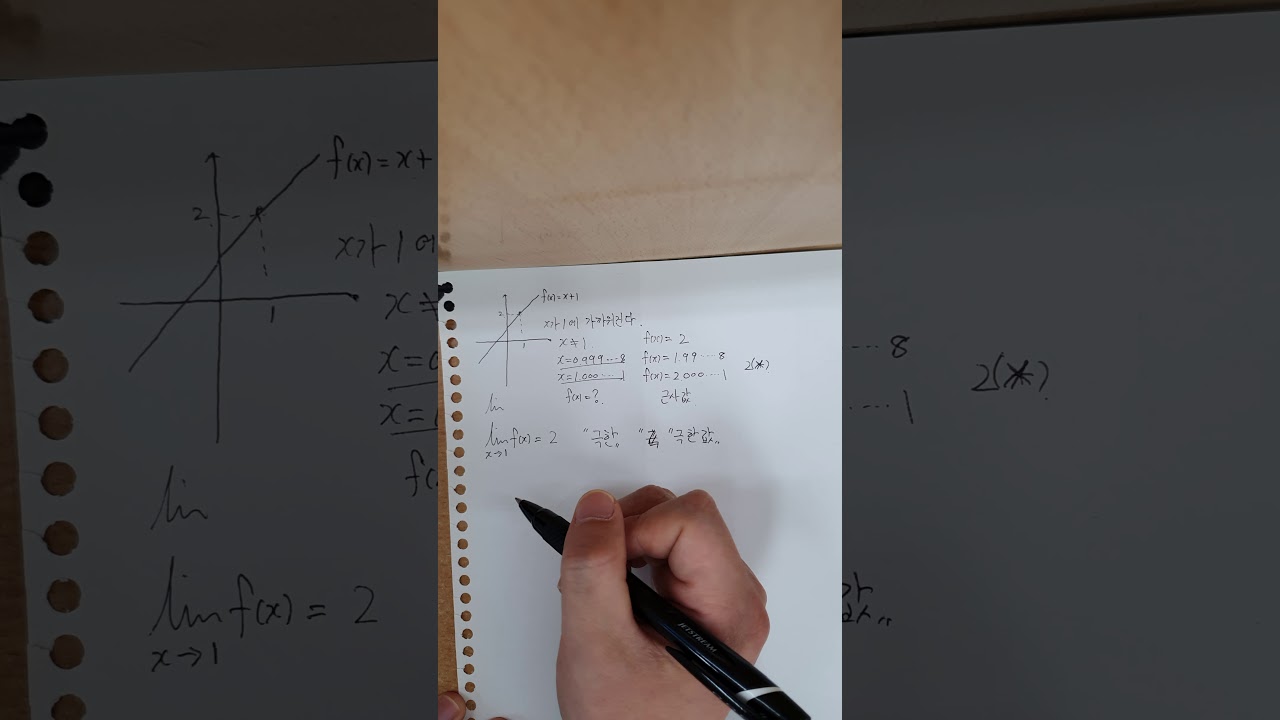 f(x)=x+1
2
1
x가 1에 가까워진다.
x≠1 f(x)=2
x=0.999....8 f(x)=1.99....8
x=1.000....1 f(x)=2.000....1 2(*)
f(x)=? 근사값
lim
lim f(x)=2 "극한" "극한값"
x→1
JETSTREAM